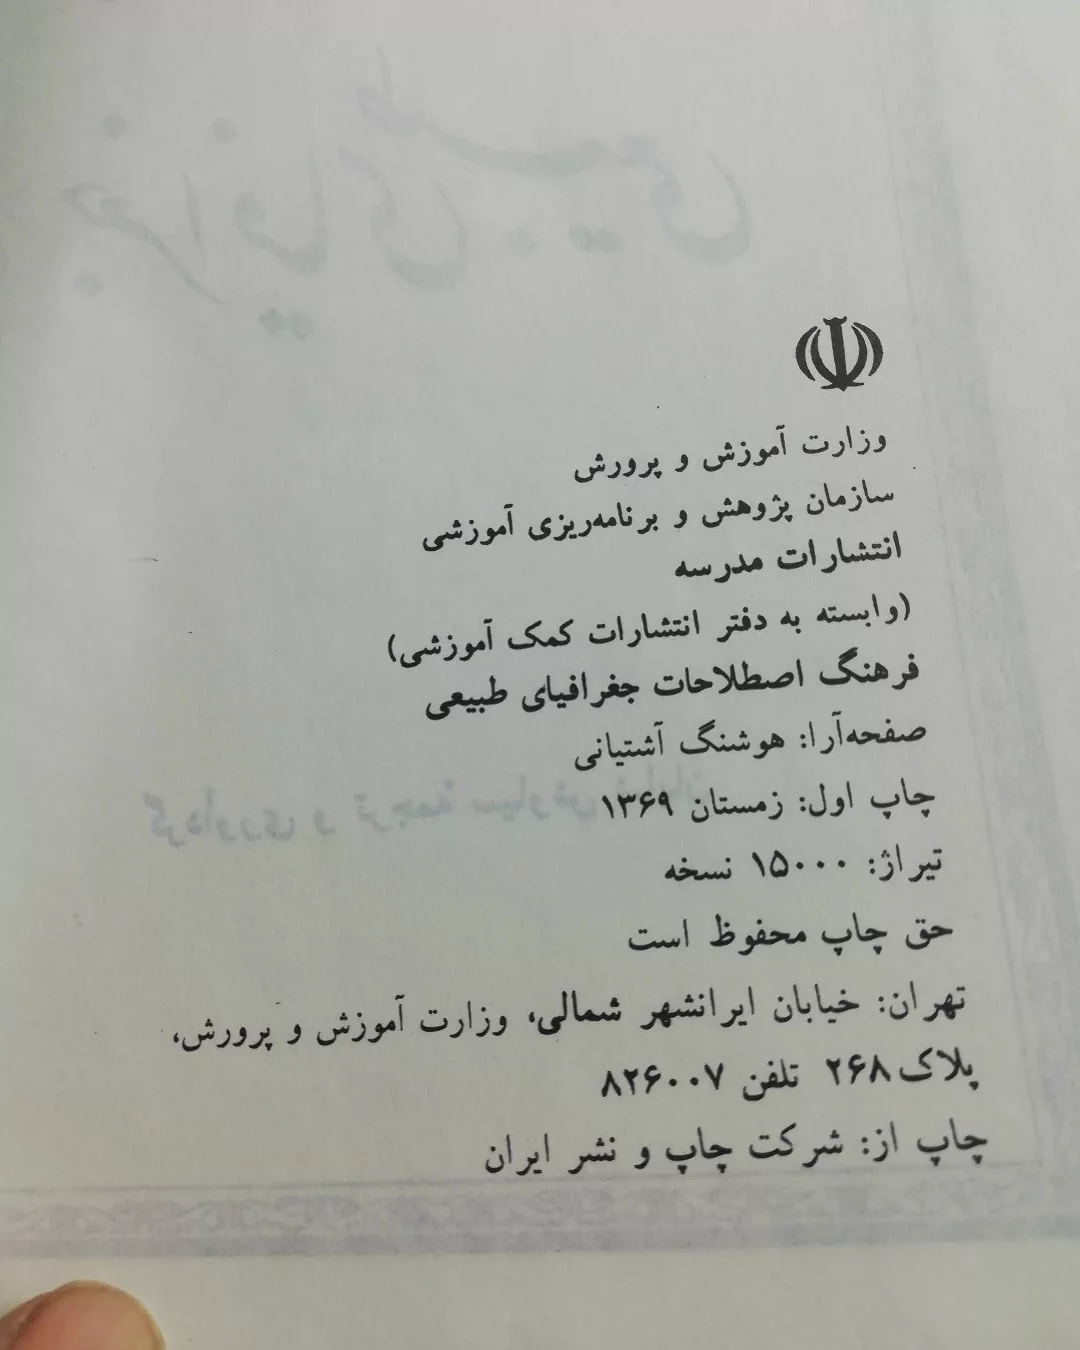 وزارت آموزش و پرورش
سازمان پژوهش و برنامه‌ریزی آموزشی
انتشارات مدرسه
(وابسته به دفتر انتشارات کمک آموزشی)
فرهنگ اصطلاحات جغرافیای طبیعی
صفحه‌آرا: هوشنگ آشتیانی
چاپ اول: زمستان ۱۳۶۹
تیراژ: ۱۵۰۰۰ نسخه
حق چاپ محفوظ است
تهران: خیابان ایرانشهر شمالی، وزارت آموزش و پرورش،
پلاک ۲۶۸ تلفن ۸۲۶۰۰۷
چاپ از: شرکت چاپ و نشر ایران